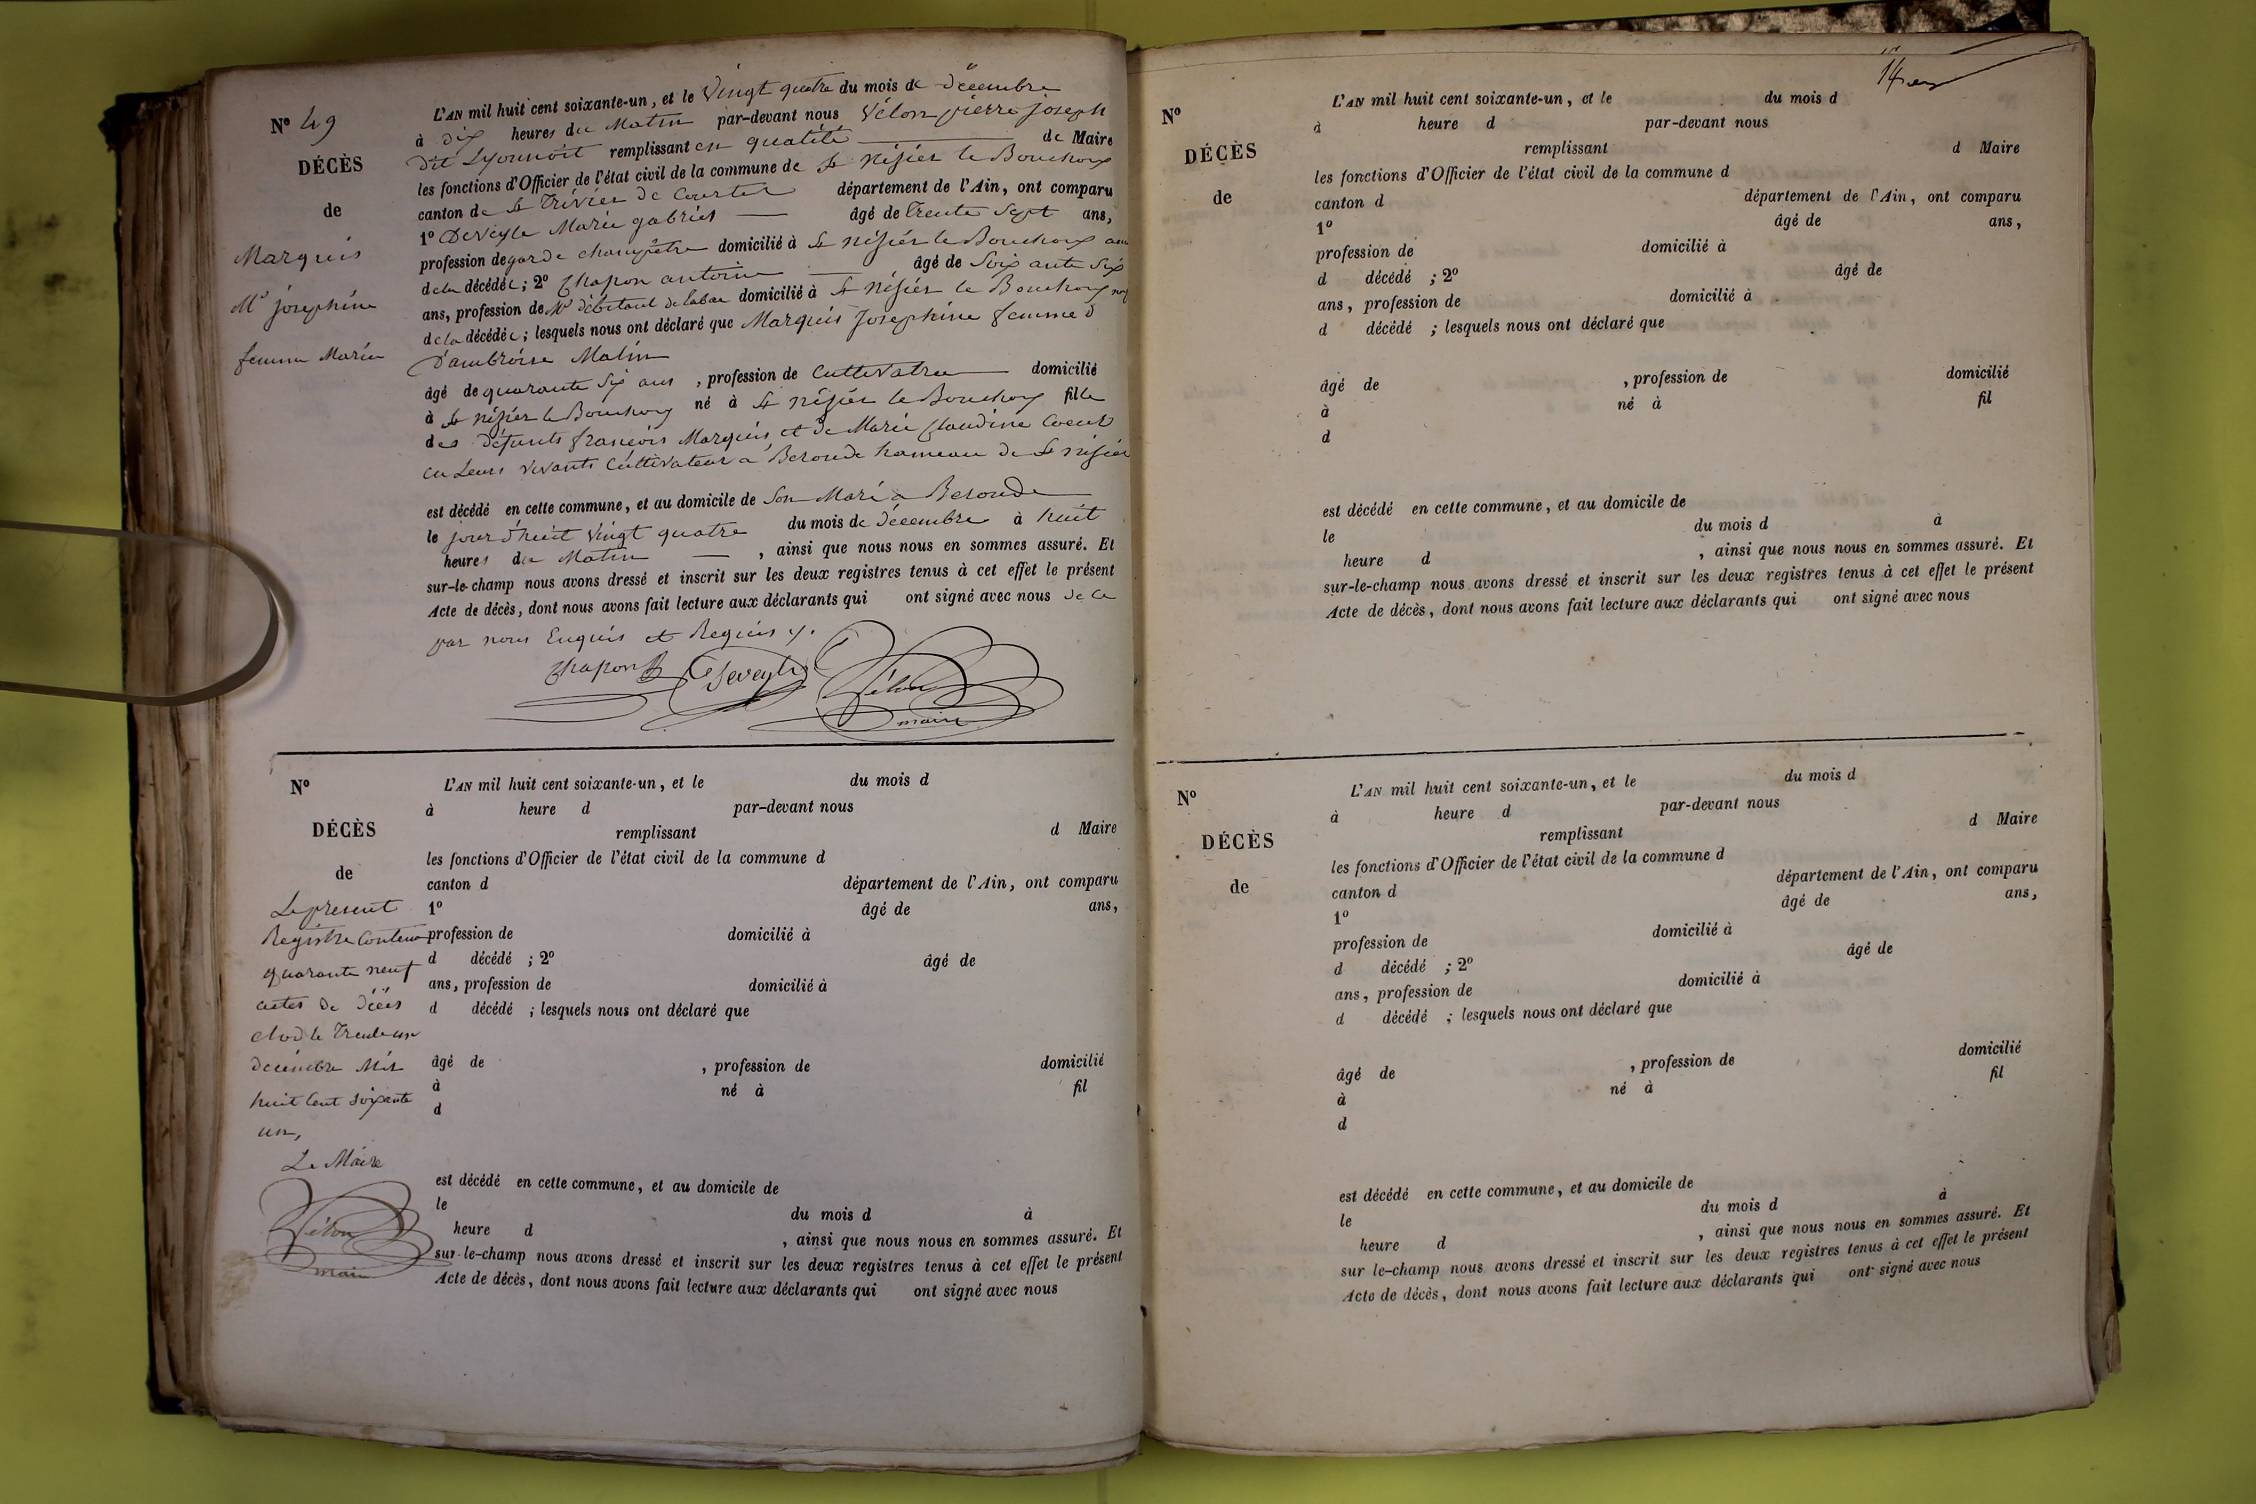 N° 49
DÉCÈS
de
Marquis
Mie josephine
femme Marie
L'AN mil huit cent soixante-un, et le Vingt quatre du mois de décembre
à dix heures du Matin par-devant nous Vélon pierre joseph
dit Lyonnoit remplissant en qualité de Maire
les fonctions d'Officier de l'état civil de la commune de St nisier le Bouchoux
canton de St Trivier de Courtes département de l'Ain, ont comparu
1° Deveyle Marie gabriel âgé de Trente Sept ans,
profession de garde champêtre domicilié à St nisier le Bouchoux ami
de la décédée; 2° Chapon antoine âgé de Soixante Six
ans, profession de Md débitant de tabac domicilié à St nisier le Bouchoux
de la décédée; lesquels nous ont déclaré que Marquis Josephine femme d
D'ambroise Malin
âgé de quarante Six ans, profession de Cultivatrice domicilié
à St nisier le Bouchoux né à St nisier le Bouchoux fille
des défunts françois Marquis et de Marie Claudine Coeur
en Leurs vivants Cultivateur a Beronde hameau de St nisier
est décédé en cette commune, et au domicile de Son Mari a Beronde
le jour d'huit Vingt quatre du mois de décembre à huit
heures du Matin, ainsi que nous nous en sommes assuré. Et
sur-le-champ nous avons dressé et inscrit sur les deux registres tenus à cet effet le présent
Acte de décès, dont nous avons fait lecture aux déclarants qui ont signé avec nous de ce
par nous Enquis et Requis
Chapon Deveyle Vélon
maire
N°
DÉCÈS
de
Le présent
Registre Contenant
quarante neuf
actes de décès
clos le Trente un
décembre Mil
huit Cent Soixante
un,
Le Maire
Vélon
maire
L'AN mil huit cent soixante-un, et le du mois d
à heure d par-devant nous
remplissant d Maire
les fonctions d'Officier de l'état civil de la commune d
canton d département de l'Ain, ont comparu
1° âgé de ans,
profession de domicilié à
d décédé ; 2° âgé de
ans, profession de domicilié à
d décédé ; lesquels nous ont déclaré que
âgé de , profession de domicilié
à né à fil
d
est décédé en cette commune, et au domicile de
le du mois d à
heure d , ainsi que nous nous en sommes assuré. Et
sur-le-champ nous avons dressé et inscrit sur les deux registres tenus à cet effet le présent
Acte de décès, dont nous avons fait lecture aux déclarants qui ont signé avec nous
N°
DÉCÈS
de
L'AN mil huit cent soixante-un, et le du mois d
à heure d par-devant nous
remplissant d Maire
les fonctions d'Officier de l'état civil de la commune d
canton d département de l'Ain, ont comparu
1° âgé de ans,
profession de domicilié à
d décédé ; 2° âgé de
ans, profession de domicilié à
d décédé ; lesquels nous ont déclaré que
âgé de , profession de domicilié
à né à fil
d
est décédé en cette commune, et au domicile de
le du mois d à
heure d , ainsi que nous nous en sommes assuré. Et
sur-le-champ nous avons dressé et inscrit sur les deux registres tenus à cet effet le présent
Acte de décès, dont nous avons fait lecture aux déclarants qui ont signé avec nous
N°
DÉCÈS
de
L'AN mil huit cent soixante-un, et le du mois d
à heure d par-devant nous
remplissant d Maire
les fonctions d'Officier de l'état civil de la commune d
canton d département de l'Ain, ont comparu
1° âgé de ans,
profession de domicilié à
d décédé ; 2° âgé de
ans, profession de domicilié à
d décédé ; lesquels nous ont déclaré que
âgé de , profession de domicilié
à né à fil
d
est décédé en cette commune, et au domicile de
le du mois d à
heure d , ainsi que nous nous en sommes assuré. Et
sur le-champ nous avons dressé et inscrit sur les deux registres tenus à cet effet le présent
Acte de décès, dont nous avons fait lecture aux déclarants qui ont signé avec nous